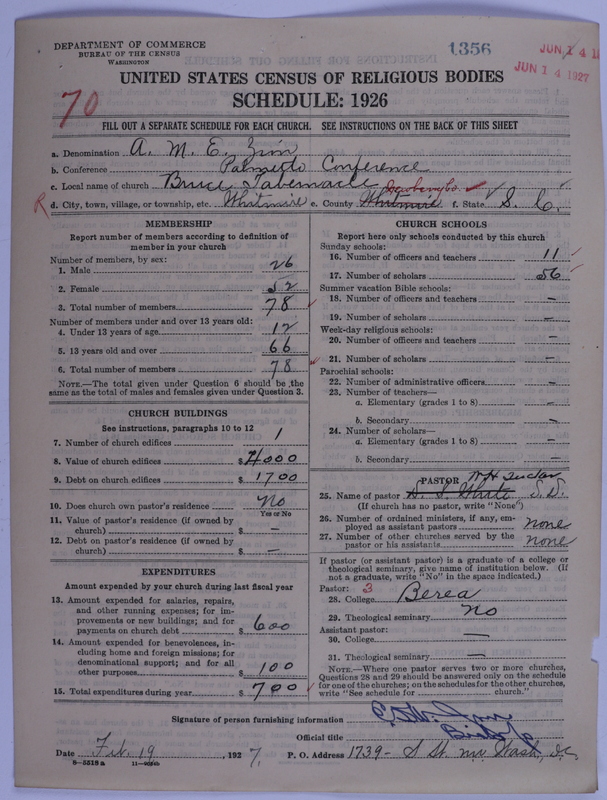 DEPARTMENT OF COMMERCE
BUREAU OF THE CENSUS
WASHINGTON
1356
JUN 14 1927
UNITED STATES CENSUS OF RELIGIOUS BODIES
SCHEDULE: 1926
70
FILL OUT A SEPARATE SCHEDULE FOR EACH CHURCH. SEE INSTRUCTIONS ON THE BACK OF THIS SHEET
a. Denomination A. M. E. Zion
b. Conference Palmetto Conference
c. Local name of church Bruce Tabernacle
R d. City, town, village, or township, etc. Whitmire e. County Whitmire Newberry f. State S. C.
MEMBERSHIP
Report number of members according to definition of member in your church
Number of members, by sex:
1. Male 26
2. Female 52
3. Total number of members 78
Number of members under and over 13 years old:
4. Under 13 years of age 12
5. 13 years old and over 66
6. Total number of members 78
NOTE.—The total given under Question 6 should be the same as the total of males and females given under Question 3.
CHURCH BUILDINGS
See instructions, paragraphs 10 to 12
7. Number of church edifices 1
8. Value of church edifices $ 4000
9. Debt on church edifices $ 1700
10. Does church own pastor's residence No
Yes or No
11. Value of pastor's residence (if owned by church) $ —
12. Debt on pastor's residence (if owned by church) $ —
EXPENDITURES
Amount expended by your church during last fiscal year
13. Amount expended for salaries, repairs, and other running expenses; for improvements or new buildings; and for payments on church debt $ 600
14. Amount expended for benevolences, including home and foreign missions; for denominational support; and for all other purposes $ 100
15. Total expenditures during year $ 700
CHURCH SCHOOLS
Report here only schools conducted by this church
Sunday schools:
16. Number of officers and teachers 11
17. Number of scholars 56
Summer vacation Bible schools:
18. Number of officers and teachers —
19. Number of scholars —
Week-day religious schools:
20. Number of officers and teachers —
21. Number of scholars —
Parochial schools:
22. Number of administrative officers —
23. Number of teachers—
a. Elementary (grades 1 to 8) —
b. Secondary —
24. Number of scholars—
a. Elementary (grades 1 to 8) —
b. Secondary —
PASTOR
25. Name of pastor
(If church has no pastor, write "None")
26. Number of ordained ministers, if any, employed as assistant pastors none
27. Number of other churches served by the pastor or his assistants none
If pastor (or assistant pastor) is a graduate of a college or theological seminary, give name of institution below. (If not a graduate, write "No" in the space indicated.)
Pastor: 3
28. College Berea
29. Theological seminary no
Assistant pastor:
30. College —
31. Theological seminary —
NOTE.—Where one pastor serves two or more churches, Questions 28 and 29 should be answered only on the schedule for one of the churches; on the schedules for the other churches, write "See schedule for church."
Signature of person furnishing information
Official title Bishop
Date Feb. 19, 1927. P. O. Address 1739- S St. nw Wash, D.C.
8—5518 a